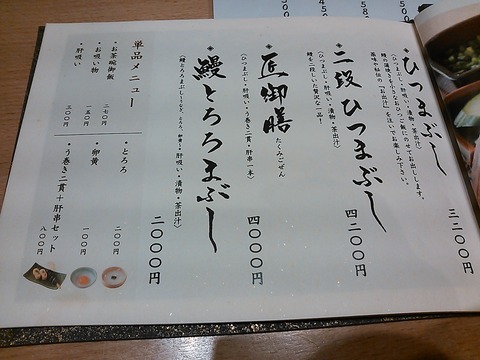 ひつまぶし
（ひつまぶし・肝吸い・漬物・茶出汁）
鰻の蒲焼きを小さなおひつご飯にのせてお出しします。
薬味や秘伝の「お出汁」をおいでお楽しみ下さい。
三二〇〇円
二段ひつまぶし
（ひつまぶし・肝吸い・漬物・茶出汁）
鰻を二段しいた贅沢な一品！
四二〇〇円
匠御膳 たくみごぜん
（ひつまぶし・肝吸い・う巻き二貫・肝串一本）
四〇〇〇円
鰻とろろまぶし
肝吸い・漬物・茶出汁）
二〇〇〇円
単品メニュー
・お茶碗御飯 二七〇円
・お吸い物 一五〇円
・肝吸い 三〇〇円
・とろろ 二〇〇円
・卵黄 一〇〇円
・う巻き二貫＋肝串セット 八〇〇円